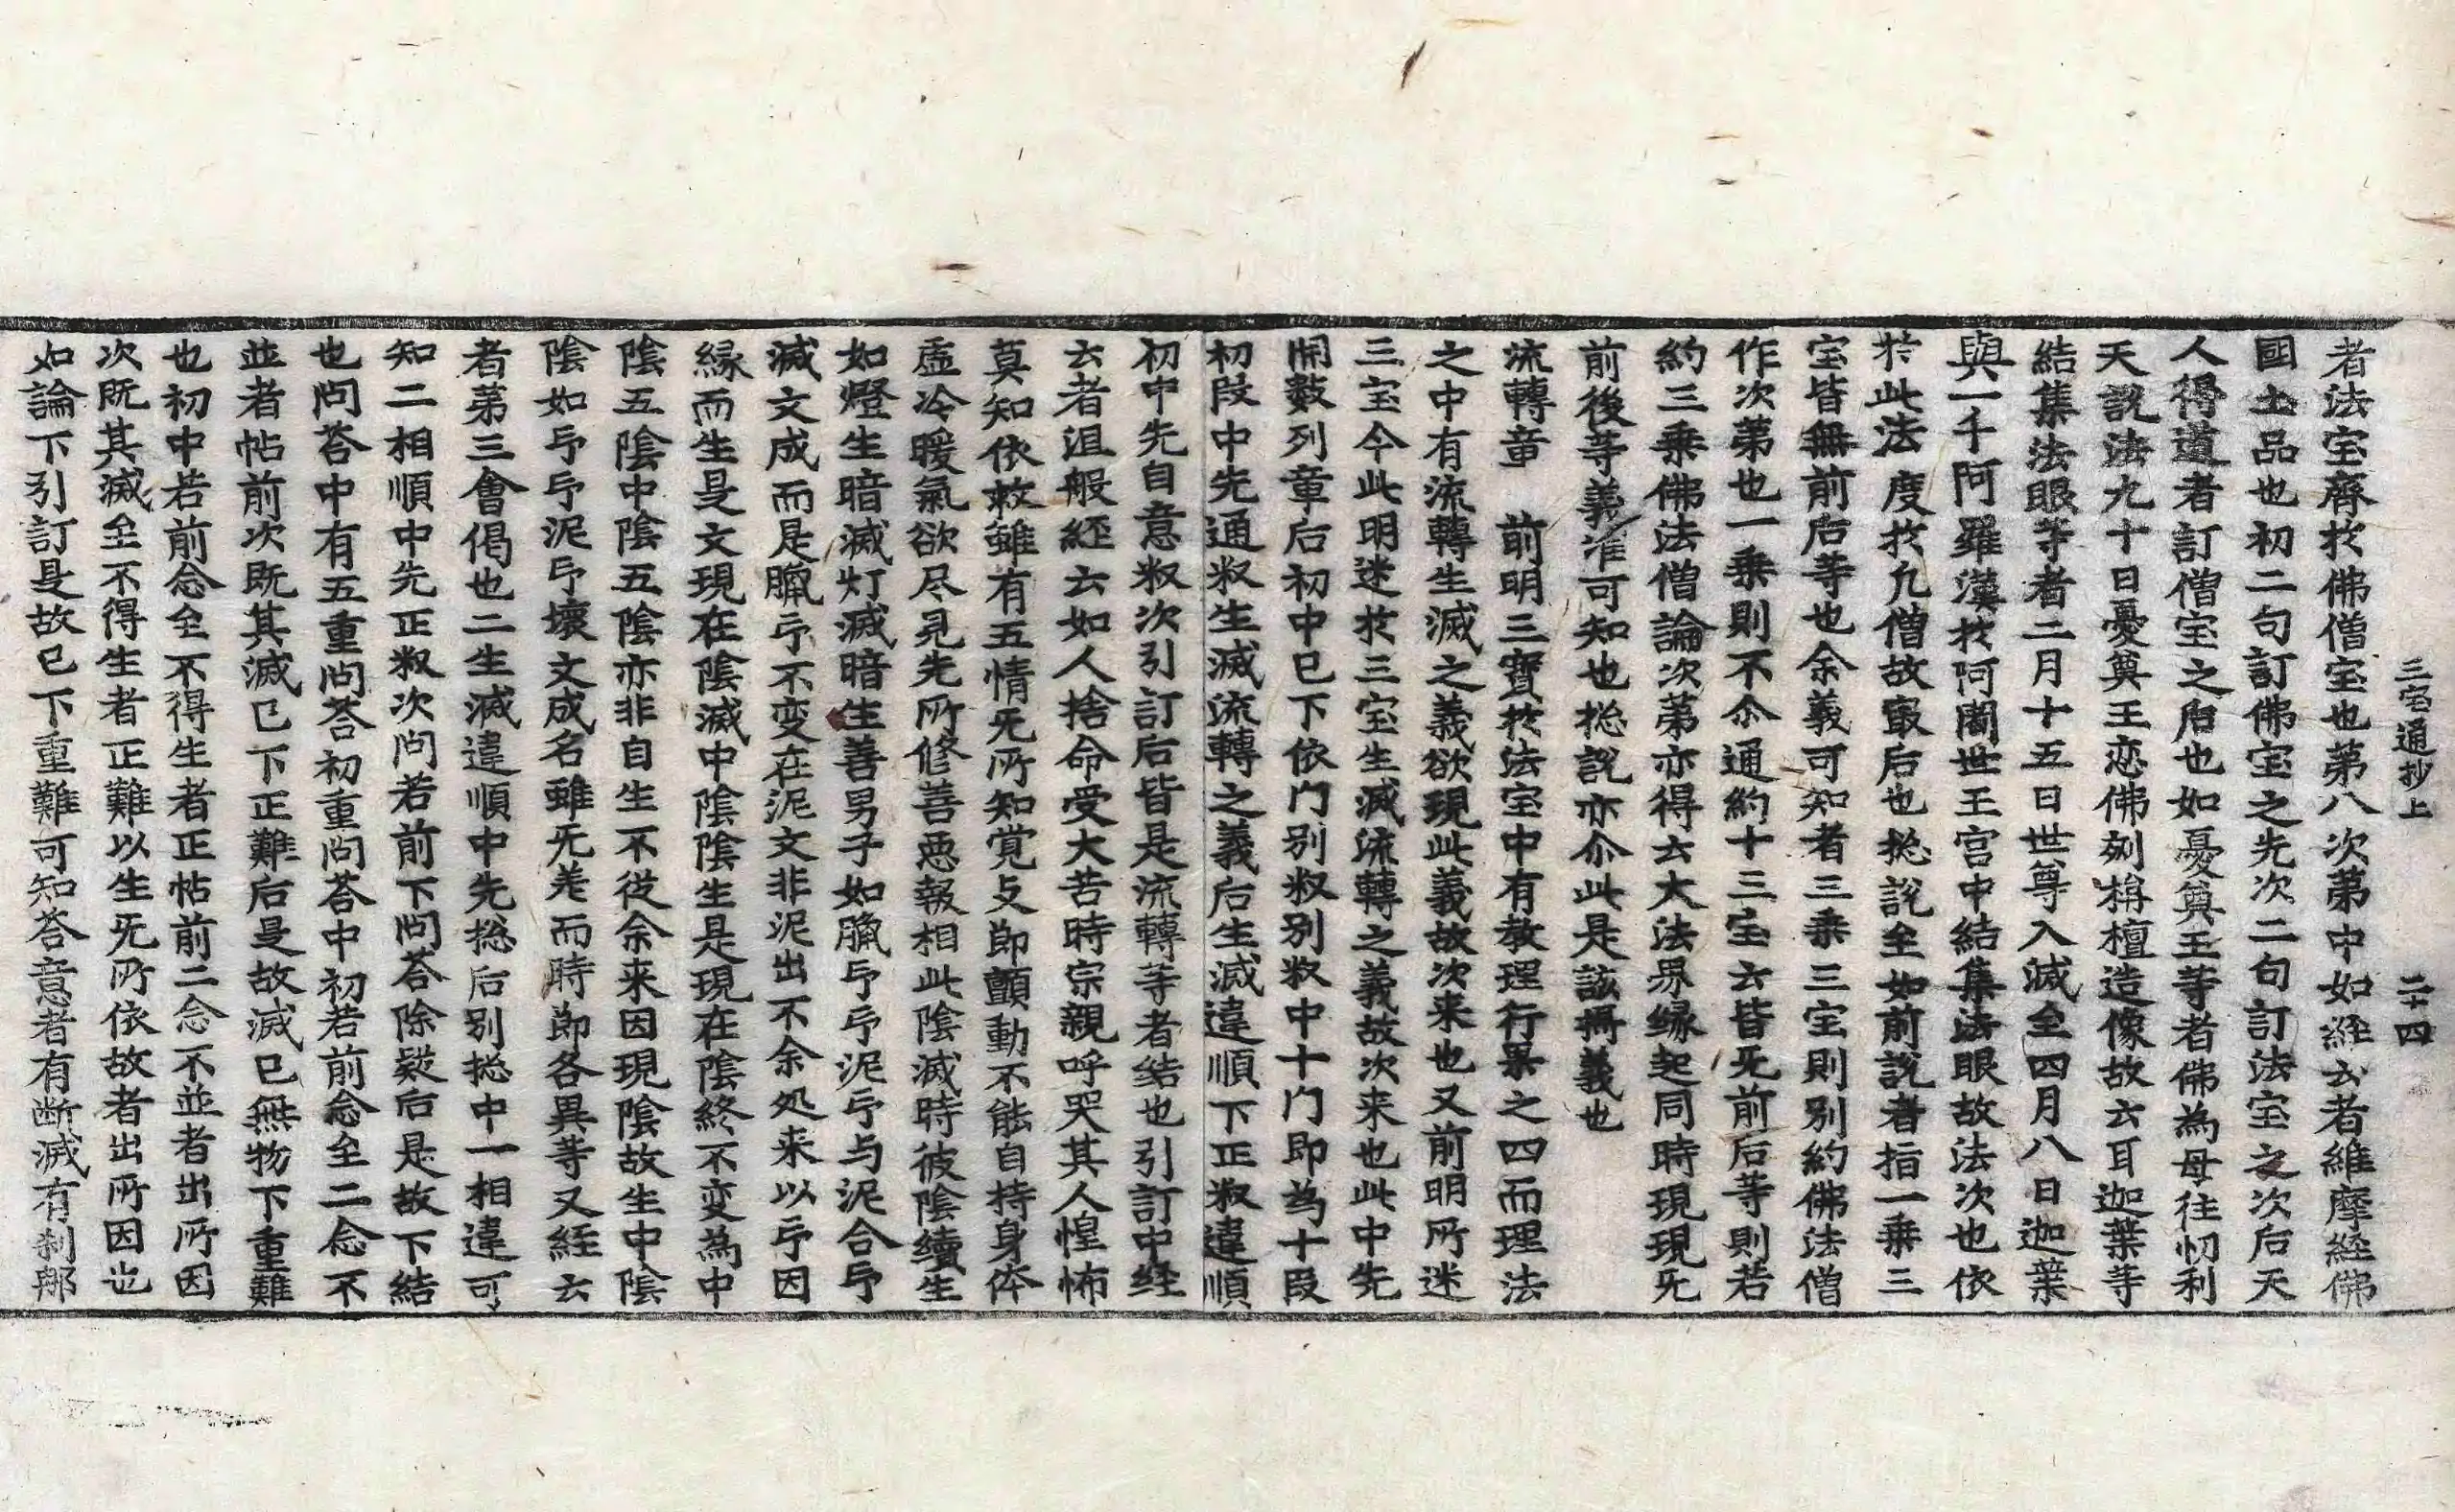 三宝通抄上 二十四
者法宝齊扵佛僧宝也第八次第中如經云者維摩經佛
國土品也初二句訂佛宝之先次二句訂法宝之次后天
人得道者訂僧宝之后也如憂奠王等者佛為母往忉利
天說法九十日憂奠王恋佛刻栴檀造像故云耳迦葉等
結集法眼等者二月十五日世尊入滅至四月八日迦葉
與一千阿羅漢扵阿闍世王宮中結集法眼故法次也依
扵此法度扵凡僧故㝡后也捴說至如前說者指一乗三
宝皆無前后等也余義可知者三乗三宝則別約佛法僧
作次第也一乗則不尒通約十三宝云皆旡前后等則若
約三乗佛法僧論次第亦得云大法界縁起同時現現旡
前後等義准可知也捴說亦尒此是該攝義也
流轉章 前明三寶扵法宝中有教理行果之四而理法
之中有流轉生滅之義欲現此義故次来也又前明所迷
三宝今此明迷扵三宝生滅流轉之義故次来也此中先
開数列章后初中已下依门別叙別叙中十门即为十段
初段中先通叙生滅流轉之義后生滅違順下正叙違順
初中先自意叙次引訂后皆是流轉等者結也引訂中経
云者涅般経云如人捨命受大苦時宗親呼哭其人惶怖
莫知依救雖有五情旡所知覚支節顫動不能自持身体
虚冷暖氣欲尽見先所修善悪報相此陰滅時彼陰續生
如燈生暗滅灯滅暗生善男子如臈印印泥印与泥合印
滅文成而是臈印不变在泥文非泥出不余処来以印因
縁而生是文現在陰滅中陰陰生是現在陰終不变為中
陰五陰中陰五陰亦非自生不従余来因現陰故生中陰
陰如印印泥印壞文成名雖旡差而時節各異等又經云
者第三會偈也二生滅違順中先捴后別捴中一相違可
知二相順中先正叙次问若前下问荅除疑后是故下結
也问荅中有五重问荅初重问荅中初若前念至二念不
並者帖前次既其滅已下正難后是故滅已無物下重難
也初中若前念至不得生者正帖前二念不並者出所因
次既其滅至不得生者正難以生旡所依故者出所因也
如論下引訂是故已下重難可知荅意者有断滅有刹那